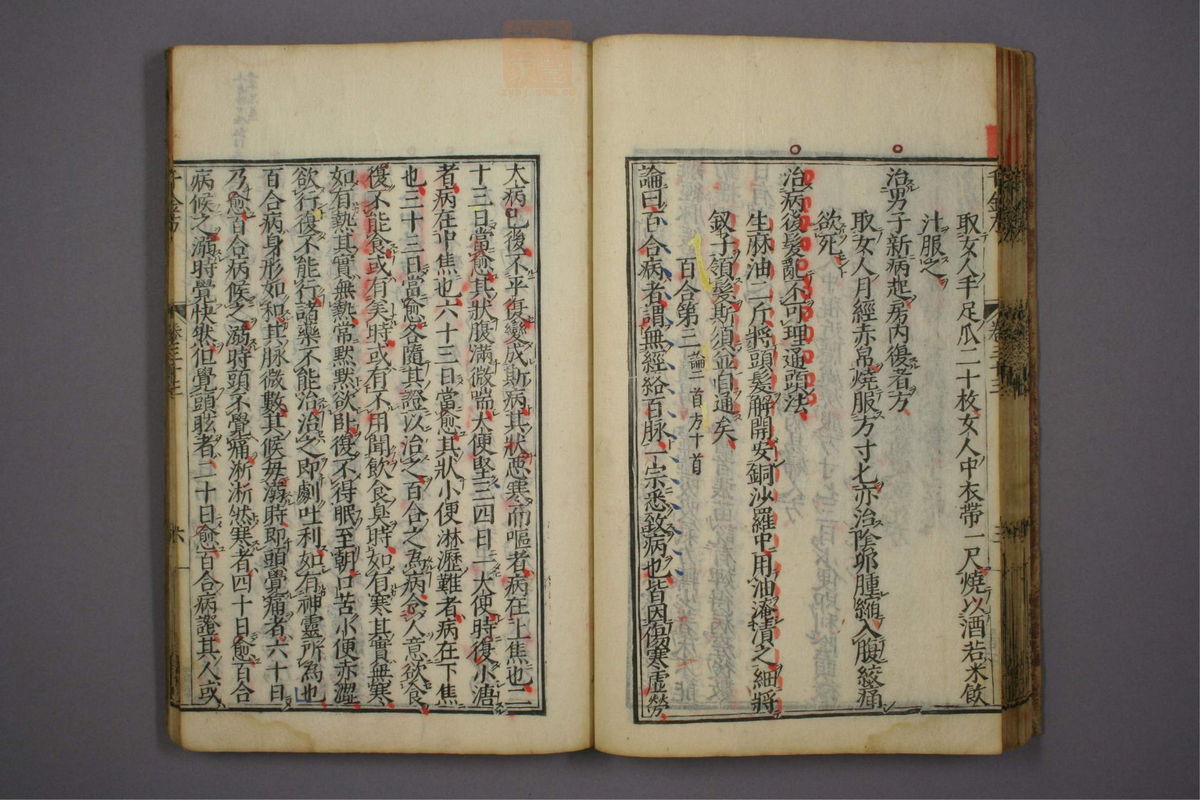 取女人手足爪二十枚女人中衣帶一尺燒以酒若米飲
汁服之
治男子新病起房內復者方
取女人月經赤帛燒服方寸匕亦治陰卵腫縮入腹絞痛
欲死
治病後髮亂不可理通頭法
生麻油二斤將頭髮解開安銅沙羅中用油淹漬之細將
釵子領髮斯須並自通矣
百合第三論一首方十首
論曰百合病者謂無經絡百脉一宗悉致病也皆因傷寒虛勞
大病已後不平復變成斯病其狀惡寒而嘔者病在上焦也二
十三日當愈其狀腹滿微喘大便堅三四日一大便時復小溏
者病在中焦也六十三日當愈其狀小便淋瀝難者病在下焦
也三十三日當愈各隨其證以治之百合之為病令人意欲食
復不能食或有美時或有不用聞飲食臭時如有寒其實無寒
如有熱其實無熱常默默欲臥復不得眠至朝口苦小便赤澀
欲行復不能行諸藥不能治治之即劇吐利如有神靈所為也
百合病身形如和其脉微數其候每溺時即頭覺痛者六十日
乃愈百合病候之溺時頭不覺痛淅淅然寒者四十日愈百合
病候之溺時覺快然但覺頭眩者二十日愈百合病證其人或
千金方
卷三十三
六